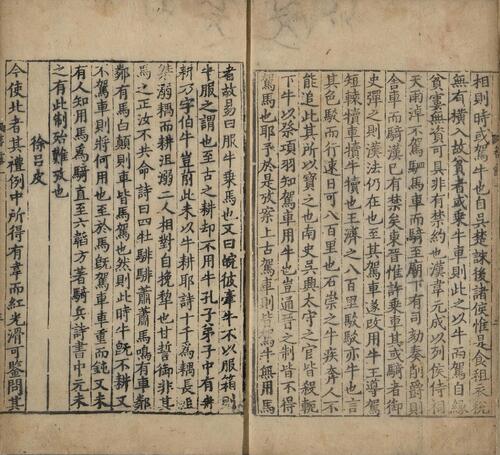 相則時或駕牛也自吳楚誅後諸侯惟是食租衣稅
無有横入故貧者或乗牛車則此之以牛而駕自緣
貧窶無資可具非有禁約也漢韋元成以列侯侍祠
天雨淖不駕駟馬車而騎至廟下有司劾奏削爵則
舍車而騎漢已有禁矣東晉惟許乗車其或騎者御
史彈之則漢法仍在也至其駕車遂改用牛王導駕
短轅犢車犢牛犢也王濟之八百里駮駮亦牛也言
其色駮而行速日可八百里也石崇之牛疾奔人不
能追此其所以寶之也南史吳興太守之官皆殺軛
下牛以祭項羽知駕車用牛也豈通晉之制皆不得
駕馬也耶予於是攷案上古駕車則皆牛無用馬
者故易曰服牛乗馬也又曰皖彼牽牛不以服箱則
牛服之謂也至古之耕却不用牛孔子弟子中有冉
耕乃字伯牛豈前此未以牛耕耶詩十千為耦長沮
桀溺耦而耕沮溺二人相對自挽犂也甘誓御非其
馬之正汝不共命詩曰四牡騑騑蕭蕭馬鳴有車鄰
鄰有馬白顛則車皆馬駕也然則此時牛旣不耕又
不駕車則將何用也至於馬旣駕車車重而鈍又未
有人知用馬為騎直至六韜方著騎兵詩書中元未
之有此制殆難攷也
徐呂皮
今使北者其禮例中所得有韋而紅光滑可鑒問其